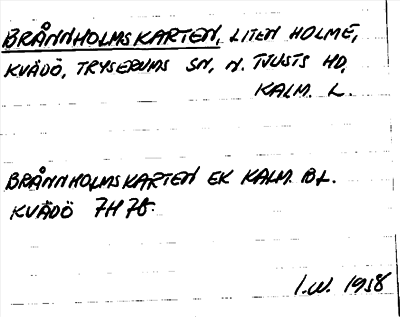 BRÅNNHOLMSKARTEN, LITEN HOLME,
KVÄDÖ, TRYSERUMS SN, N. TJUSTS HD,
KALM. L.
BRÅNNHOLMSKARTEN EK KALM. BL.
KVÄDÖ 7H 78.
I.W. 1958